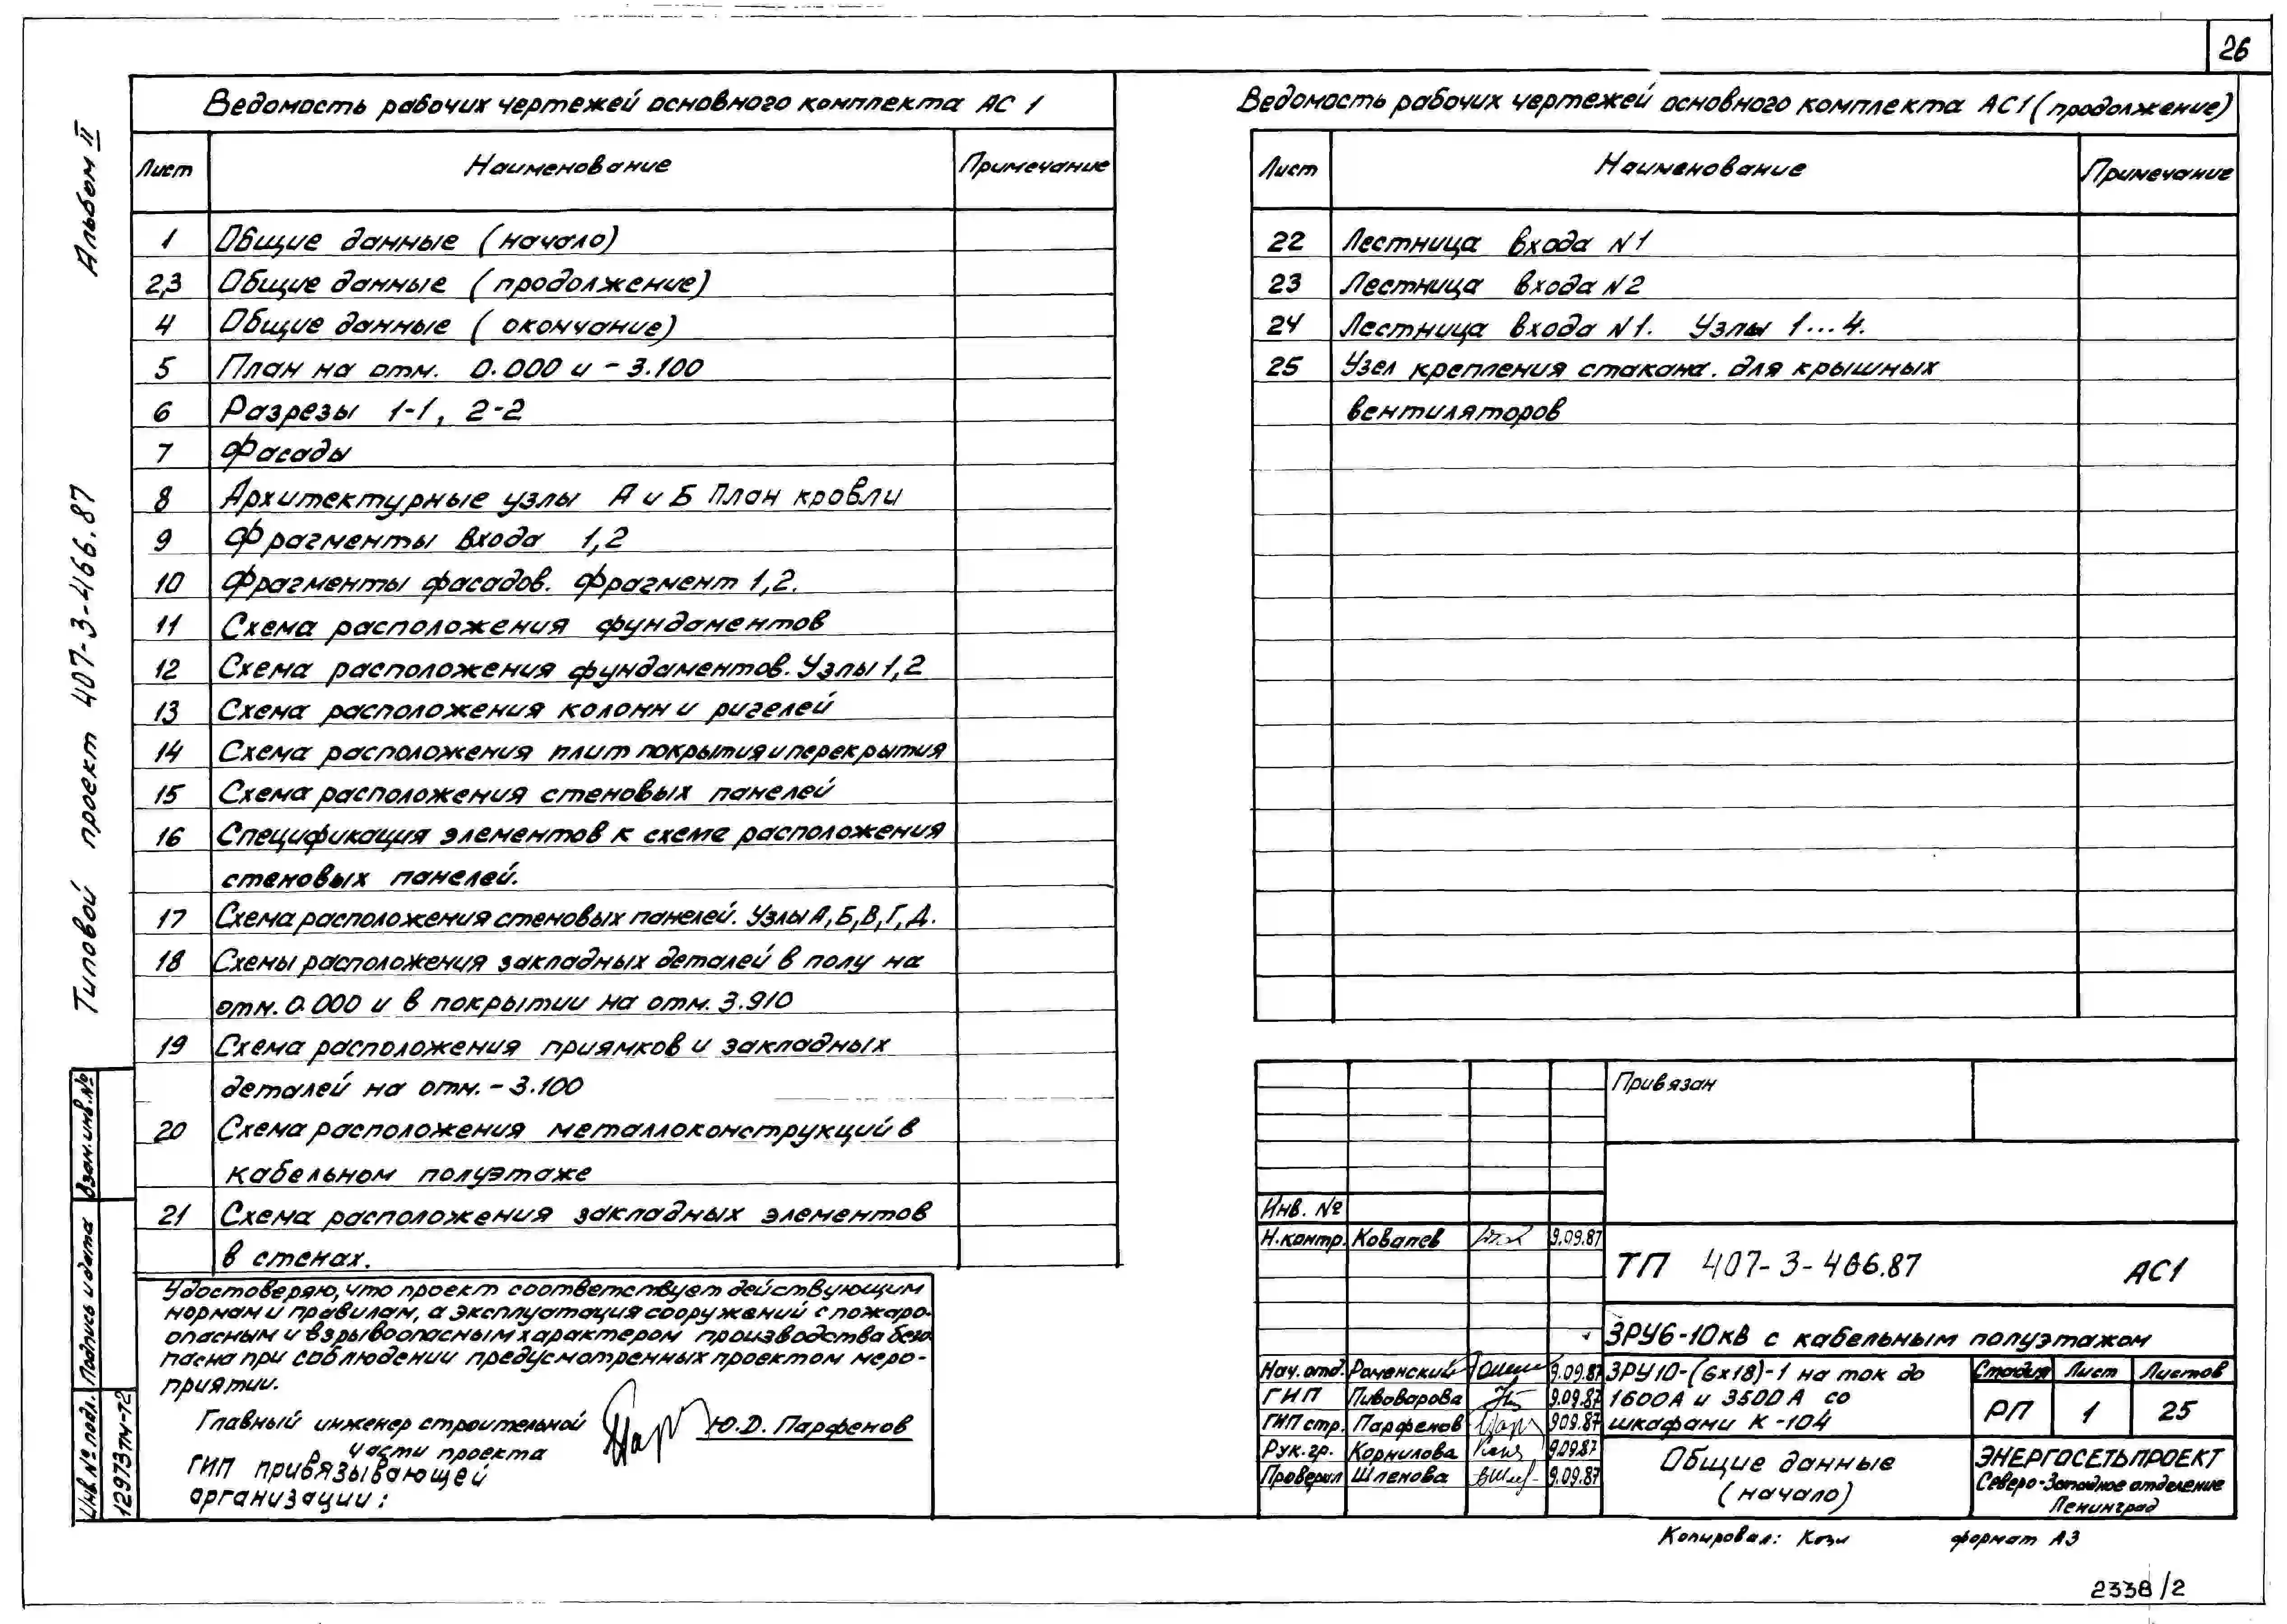 26
Альбом II
Типовой проект 407-3-466.87
Ведомость рабочих чертежей основного комплекта АС 1
Лист Наименование Примечание
1 Общие данные (начало)
2,3 Общие данные (продолжение)
4 Общие данные (окончание)
5 План на отм. 0.000 и -3.100
6 Разрезы 1-1, 2-2
7 Фасады
8 Архитектурные узлы А и Б План кровли
9 Фрагменты входа 1,2
10 Фрагменты фасадов. Фрагмент 1,2.
11 Схема расположения фундаментов
12 Схема расположения фундаментов. Узлы 1,2
13 Схема расположения колонн и ригелей
14 Схема расположения плит покрытия и перекрытия
15 Схема расположения стеновых панелей
16 Спецификация элементов к схеме расположения
стеновых панелей.
17 Схема расположения стеновых панелей. Узлы А,Б,В,Г,Д.
18 Схемы расположения закладных деталей в полу на
отм. 0.000 и в покрытии на отм. 3.910
19 Схема расположения приямков и закладных
деталей на отм. -3.100
20 Схема расположения металлоконструкций в
кабельном полуэтаже
21 Схема расположения закладных элементов
в стенах.
Удостоверяю, что проект соответствует действующим
нормам и правилам, а эксплуатация сооружений с пожаро-
опасным и взрывоопасным характером производства безо
пасна при соблюдении предусмотренных проектом меро-
приятии.
Главный инженер строительной
части проекта
Ю.Д. Парфенов
ГИП привязывающей
организации:
Взам.инв.№
Подпись и дата
Инв № подл.
12973тм-т2
Ведомость рабочих чертежей основного комплекта АС1 (продолжение)
Лист Наименование Примечание
22 Лестница входа N1
23 Лестница входа N2
24 Лестница входа N1. Узлы 1...4.
25 Узел крепления стакана. для крышных
вентиляторов
Привязан
Инв. №
Н.контр. Ковалев 9.09.87
ТП 407-3-466.87 АС1
ЗРУ6-10кВ с кабельным полуэтажом
Нач.отд. Роменский 9.09.87
ГИП Пивоварова 9.09.87
ГИП стр. Парфенов 909.87
Рук.гр. Корнилова 9.09.87
Проверил Шленова 9.09.87
ЗРУ10-(6х18)-1 на ток до
1600А и 3500А со
шкафами К-104
Стадия Лист Листов
РП 1 25
Общие данные
(начало)
ЭНЕРГОСЕТЬПРОЕКТ
Северо-Западное отделение
Ленинград
Копировал: Кози формат А3
2338/2